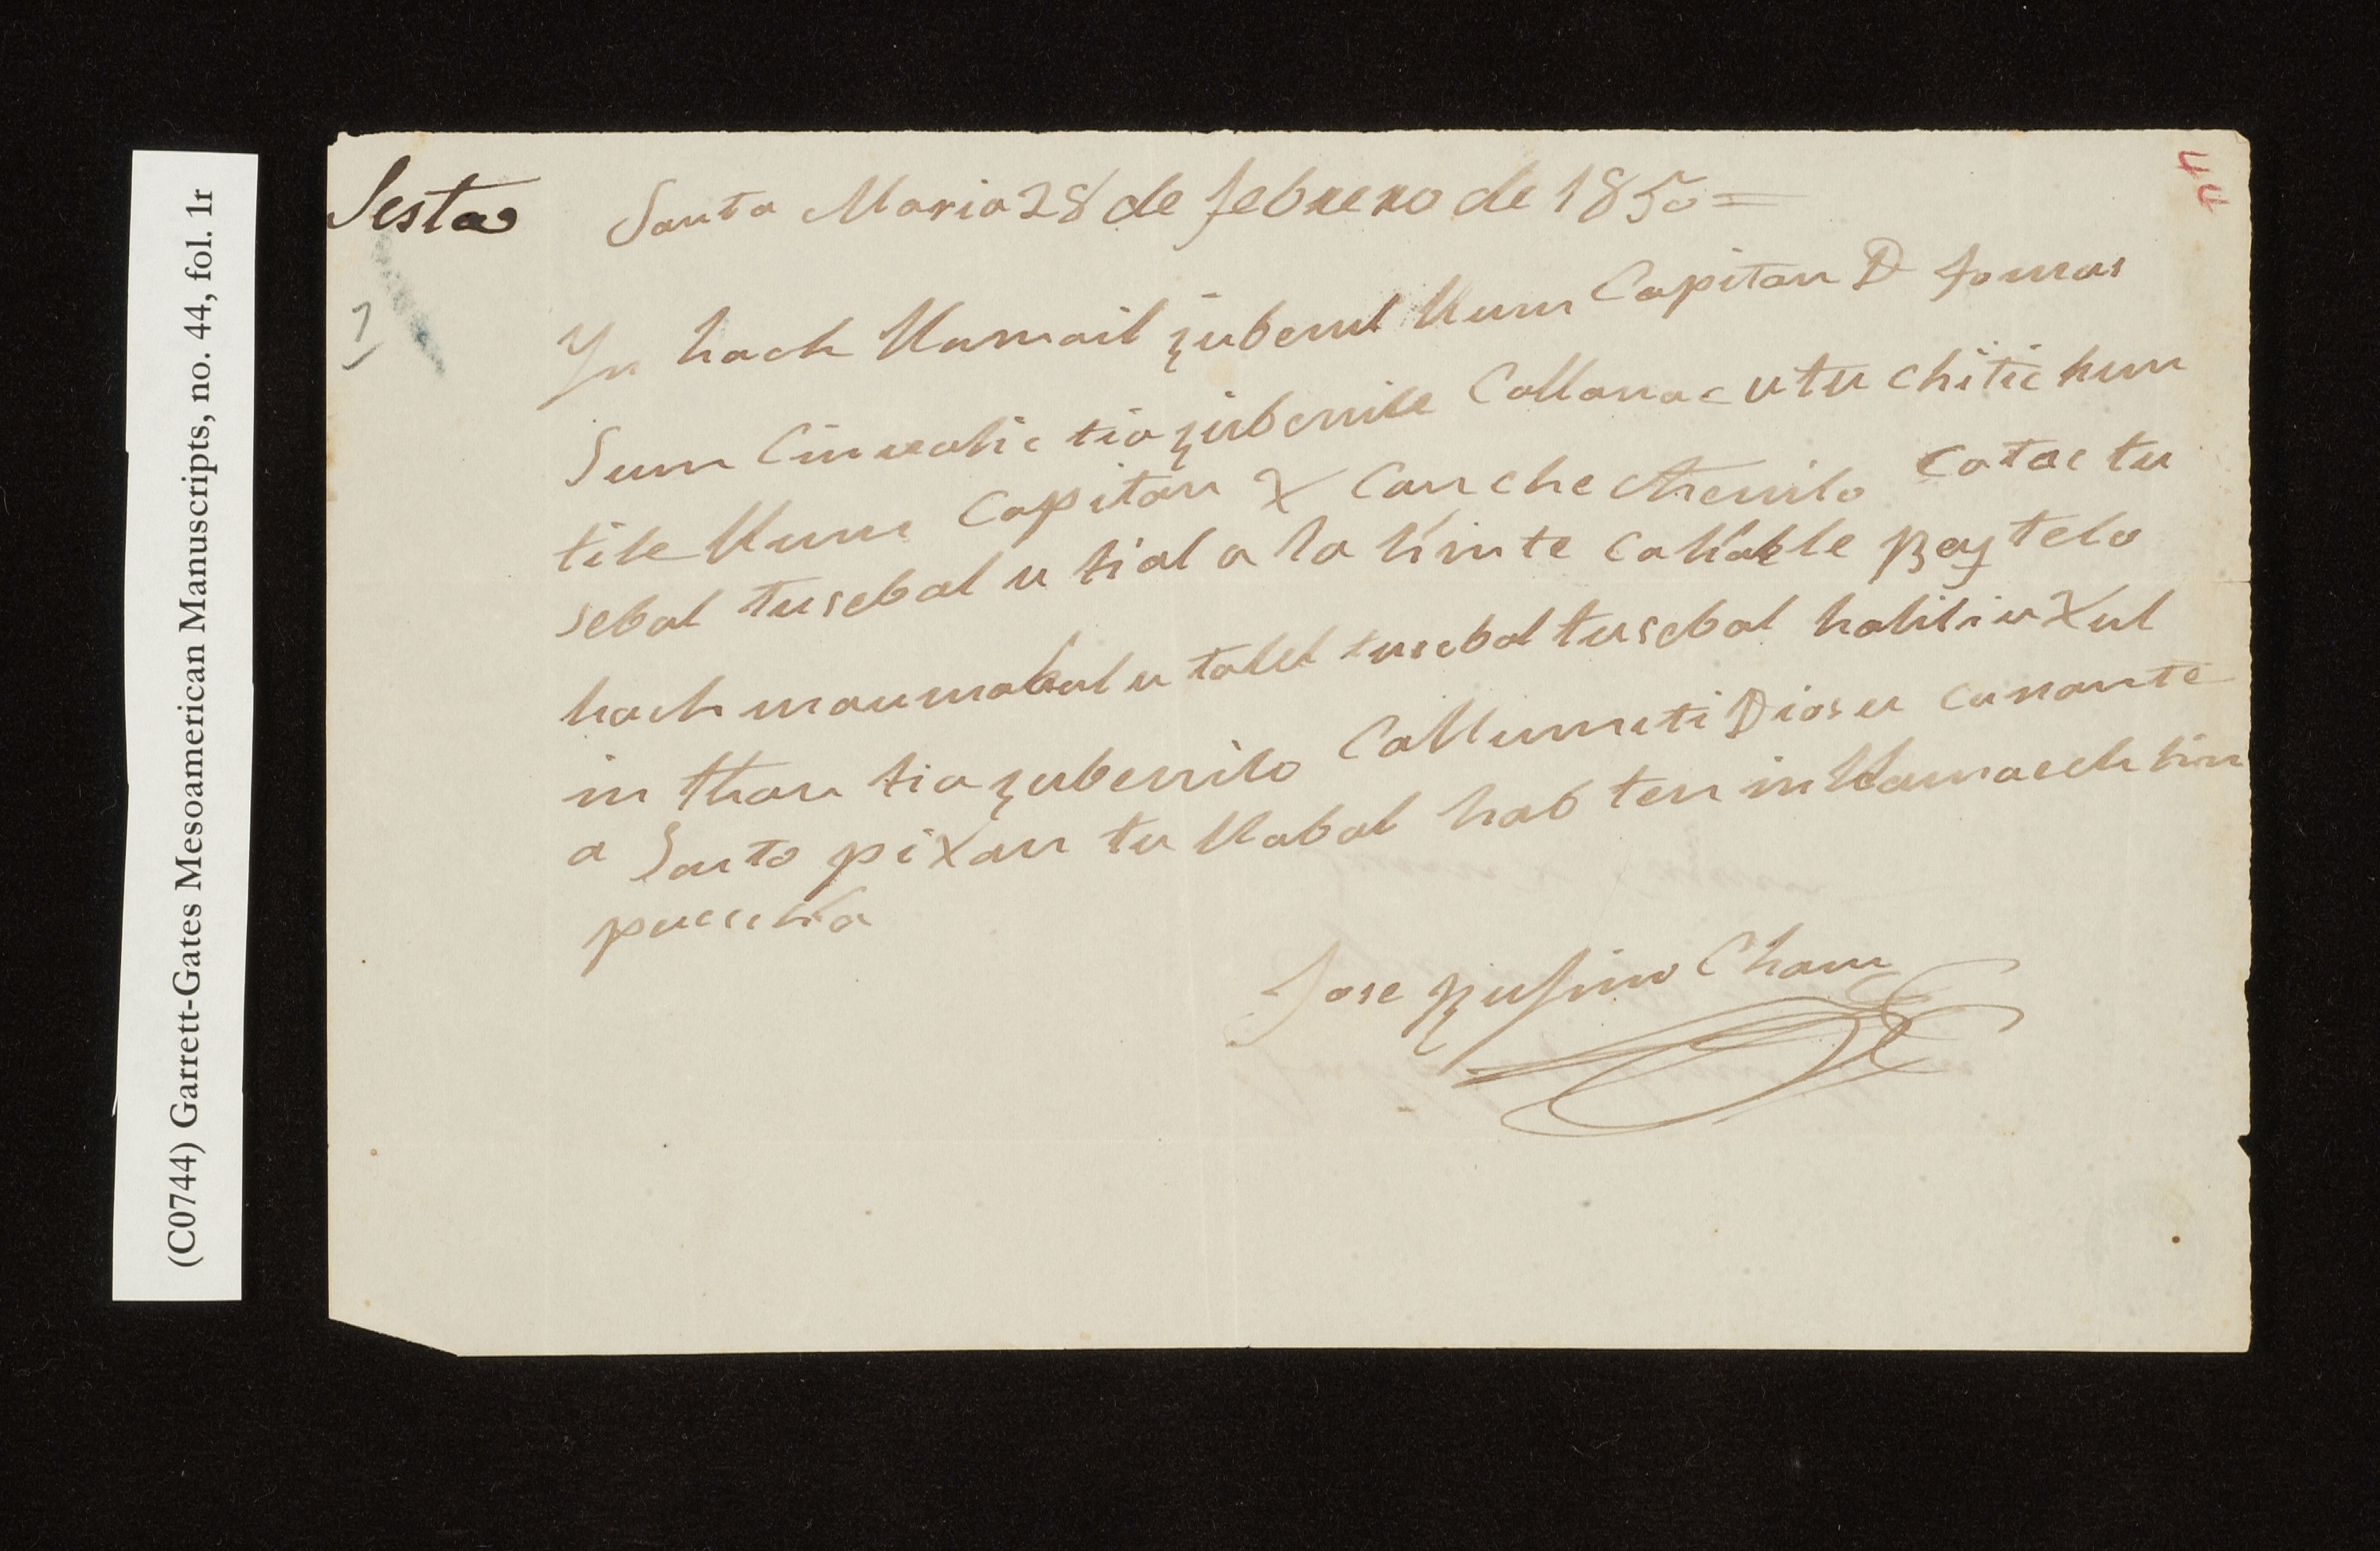 (C0744) Garrett-Gates Mesoamerican Manuscripts, no. 44, fol. 1r
44
Sesta
1
Santa Maria 28 de febrero de 1850=
Yn hach Kamail Kum Capitan D tomas
Sum tia Collanac utu chitic kun
tile Kum Capitan X Canche catac tu
sebal tusebal u tial a la kinte cakable Bay telo
hach maumakal u talel tusebal tusebal halili u Xul
in than tia Cakumti Dios u canante
a Santo piXan tu Kabal hab ten in Kamaech tin
pucsikla
Jose Rufino Cham